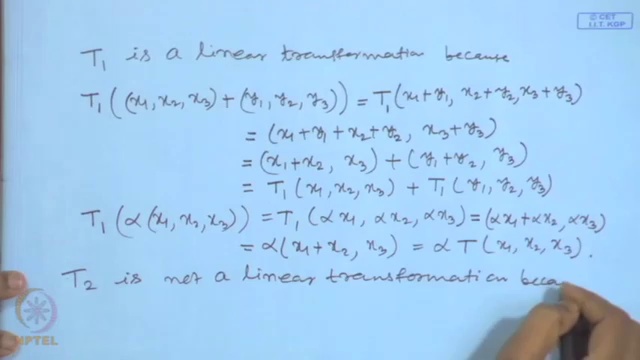 © CET
I.I.T. KGP
T₁ is a linear transformation because
T₁((x₁, x₂, x₃) + (y₁, y₂, y₃)) = T₁(x₁+y₁, x₂+y₂, x₃+y₃)
= (x₁+y₁+x₂+y₂, x₃+y₃)
= (x₁+x₂, x₃) + (y₁+y₂, y₃)
= T₁(x₁, x₂, x₃) + T₁(y₁, y₂, y₃)
T₁(α(x₁, x₂, x₃)) = T₁(αx₁, αx₂, αx₃) = (αx₁+αx₂, αx₃)
= α(x₁+x₂, x₃) = αT(x₁, x₂, x₃).
T₂ is not a linear transformation beca
NPTEL